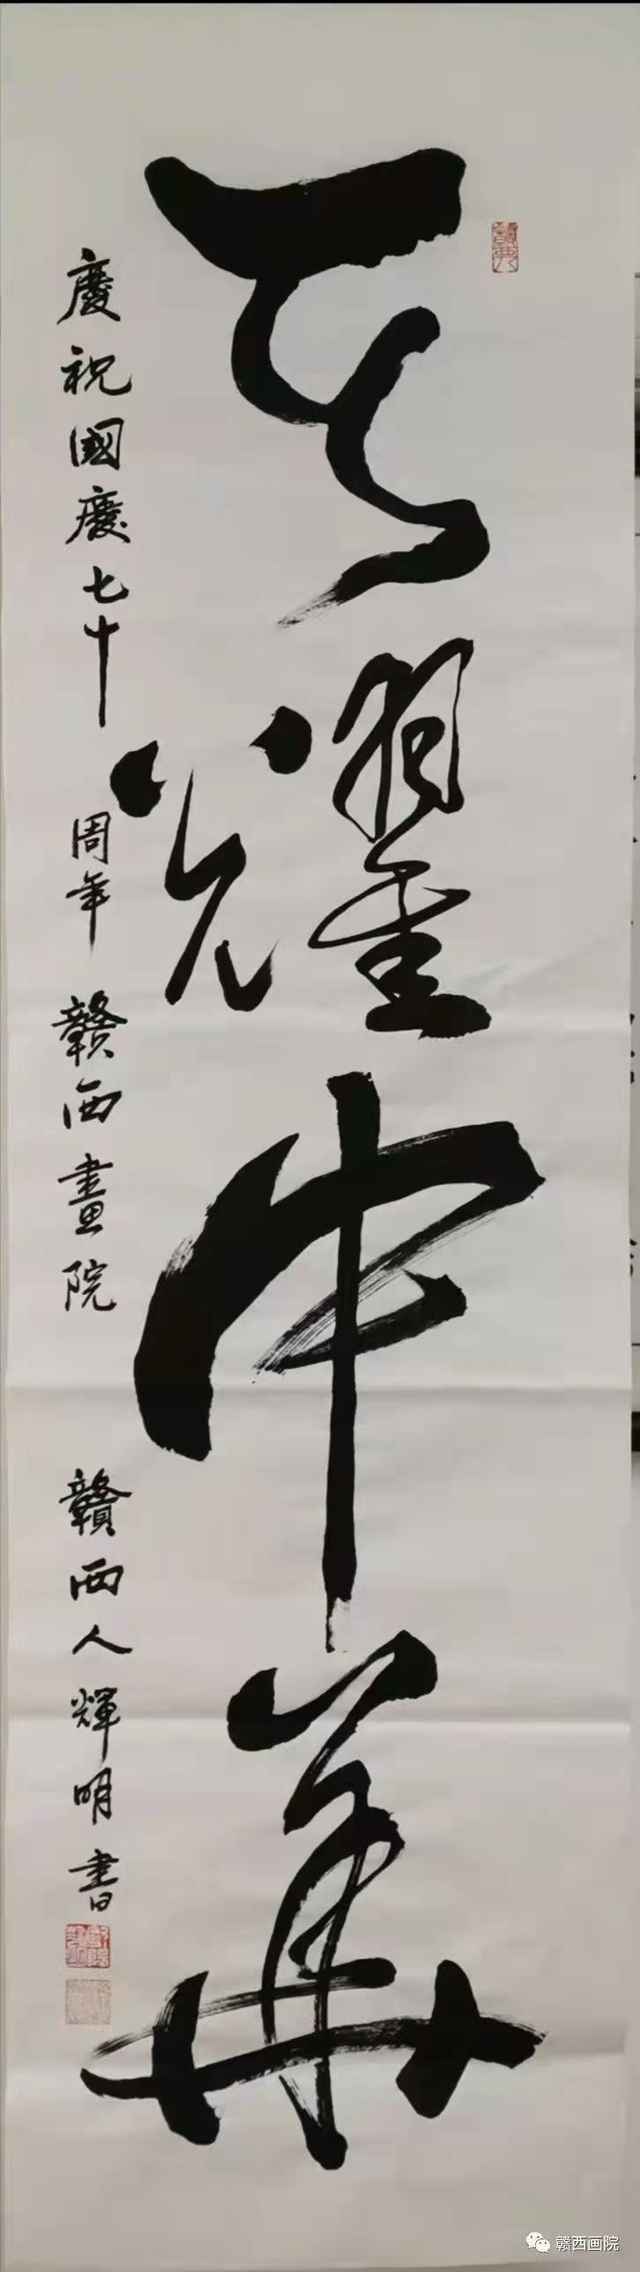 天耀中華
慶祝國慶七十周年 贛西畫院 贛西人輝明書
赣西画院